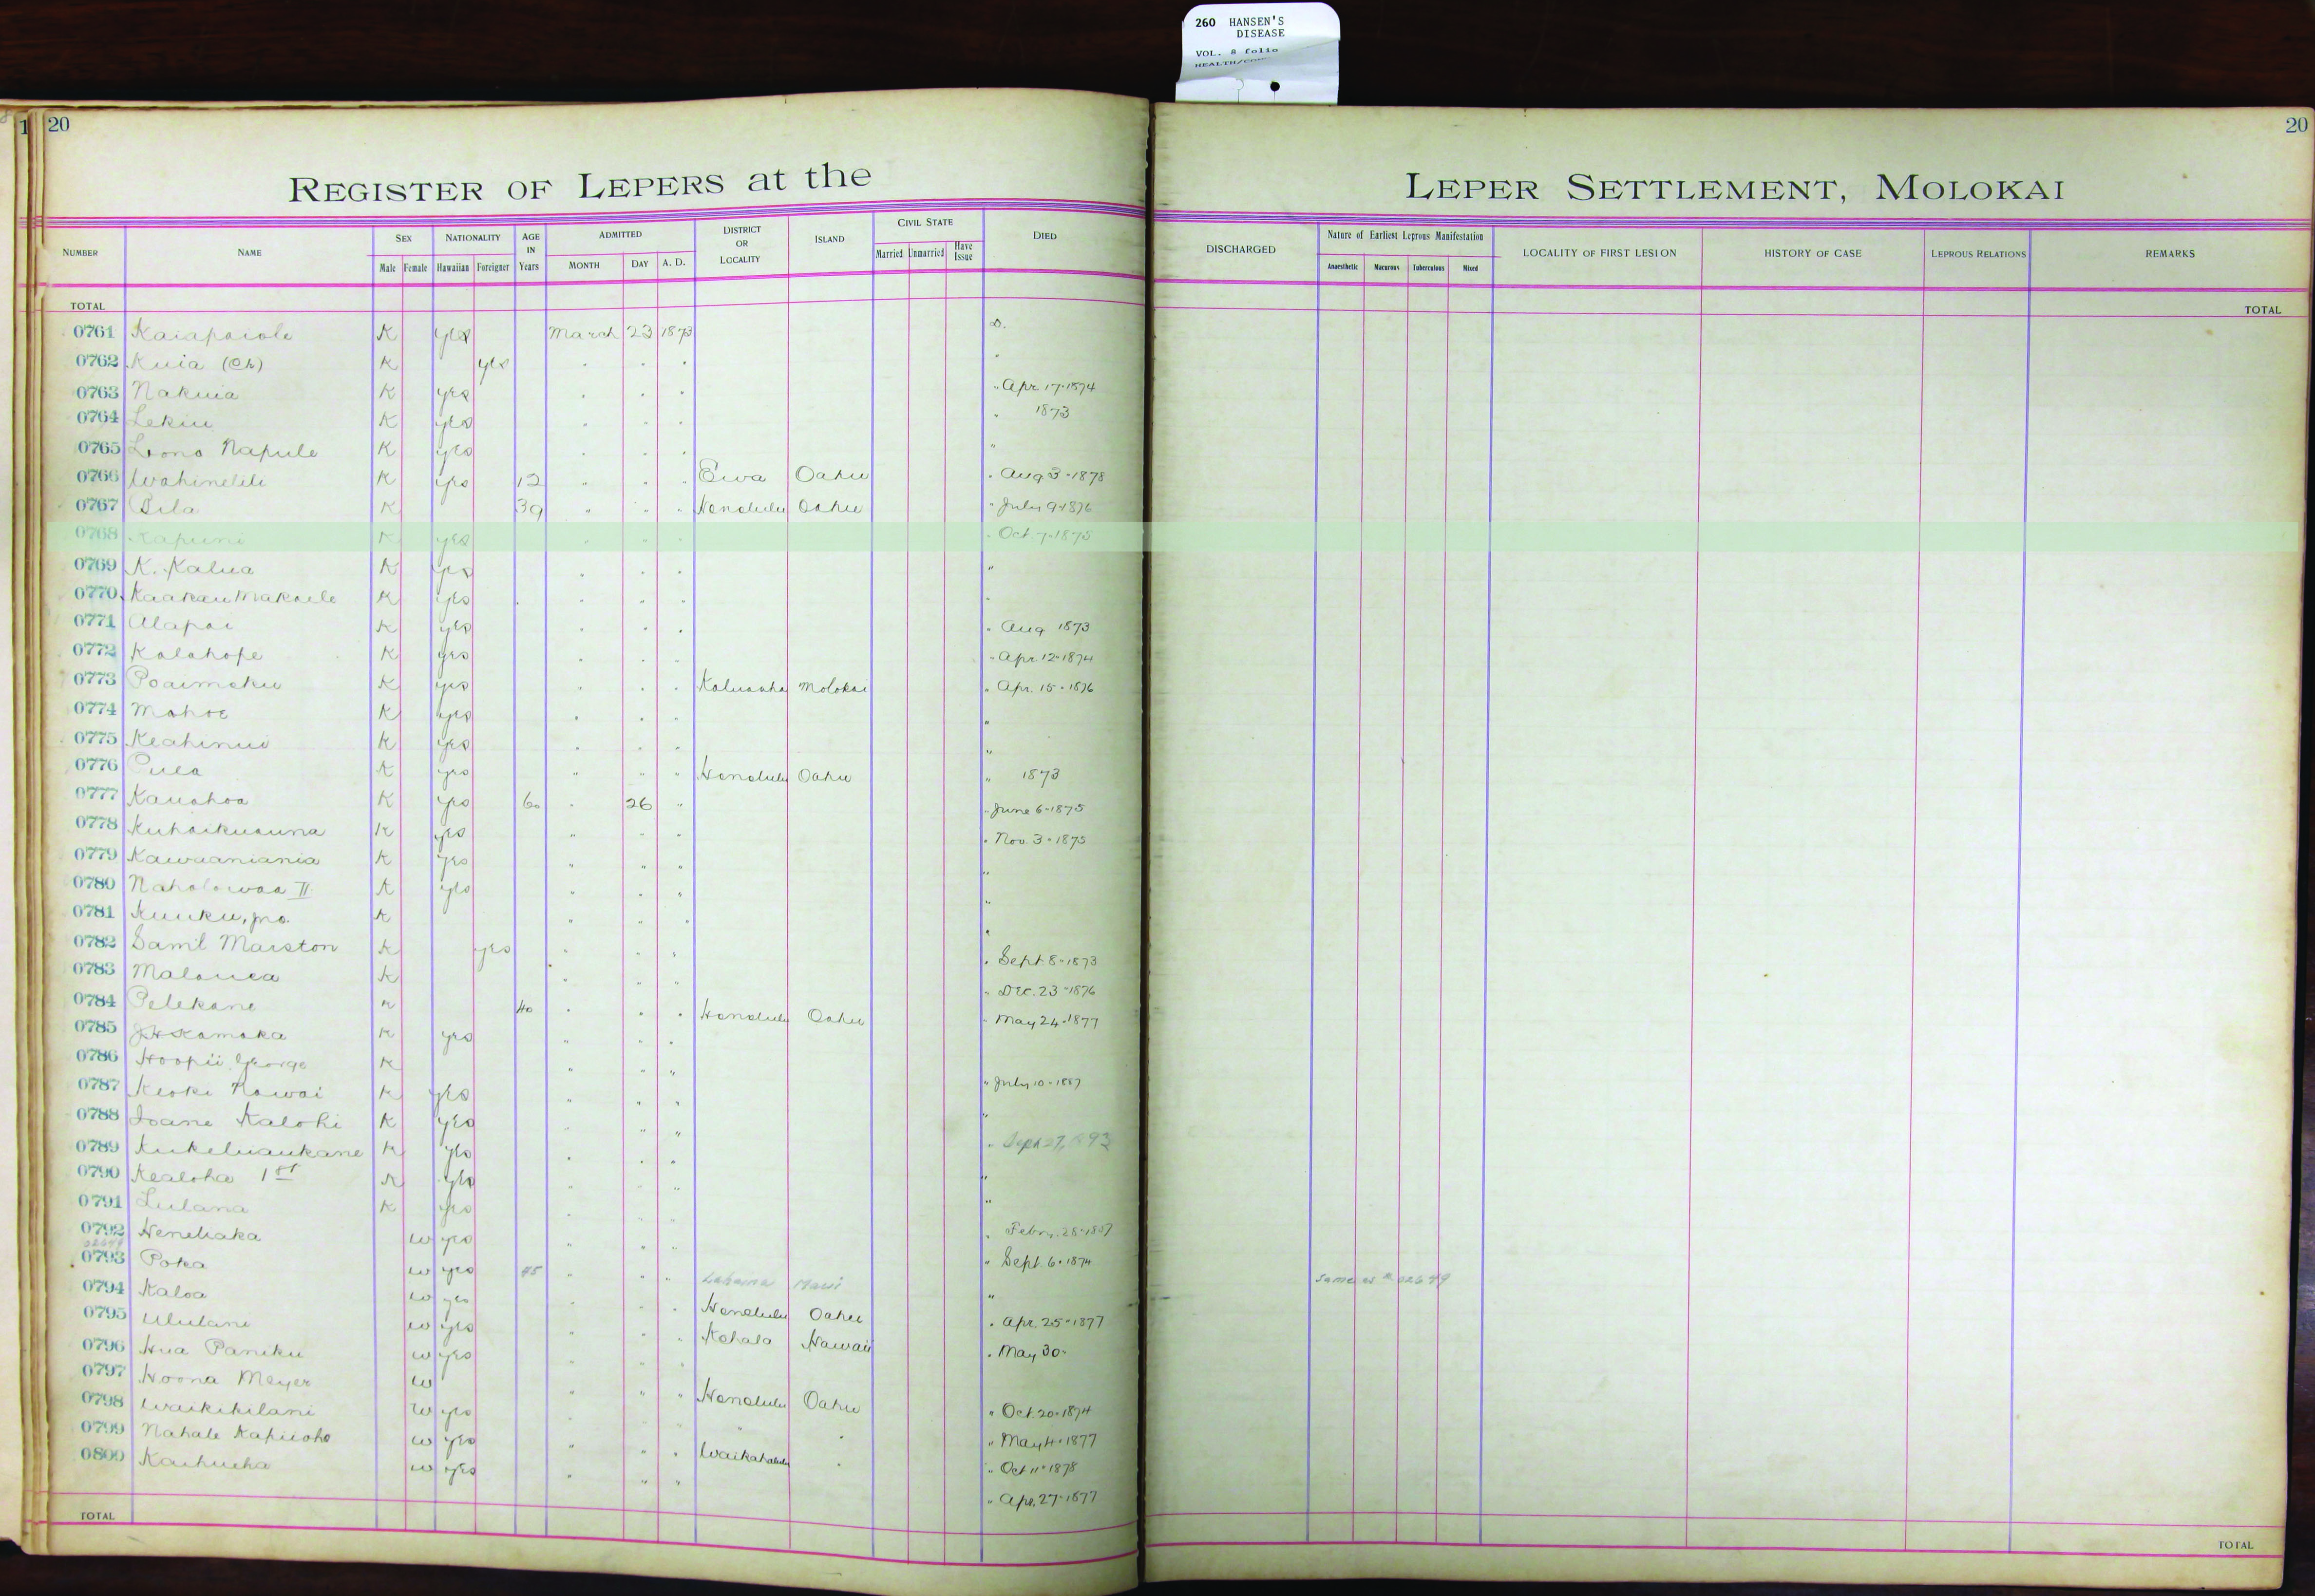 260 HANSEN'S
DISEASE
VOL. 8 folio
20
20
REGISTER OF LEPERS at the LEPER SETTLEMENT, MOLOKAI
NUMBER NAME SEX Male Female NATIONALITY Hawaiian Foreigner AGE IN Years ADMITTED MONTH DAY A. D. DISTRICT OR LOCALITY ISLAND CIVIL STATE Married Unmarried Have Issue DIED DISCHARGED Nature of Earliest Leprous Manifestation Anaesthetic Macurous Tuberculous Mixed LOCALITY OF FIRST LESION HISTORY OF CASE LEPROUS RELATIONS REMARKS
TOTAL TOTAL
0761 Kaiapaiole K yes March 23 1873 D.
0762 Kuia (Ch) K yes " " " "
0763 Nakuia K yes " " " " Apr. 17-1874
0764 Lekiu K yes " " " " 1873
0765 Lono Napule K yes " " " "
0766 Wahinelili K yes 12 " " " Ewa Oahu " Aug 3-1878
0767 Pila K 39 " " " Honolulu Oahu " July 9-1876
0768 Kapuni K yes " " " " Oct 7-1875
0769 K. Kalua K yes " " " "
0770 Kaakau Makaele K yes " " " "
0771 Alapai K yes " " " " Aug 1873
0772 Kalahope K yes " " " " Apr. 12-1874
0773 Poaimoku K yes " " " Kaluaaha Molokai " Apr. 15-1876
0774 Mahoe K yes " " " "
0775 Keahinui K yes " " " "
0776 Pulea K yes " " " Honolulu Oahu " 1873
0777 Kauahoa K yes 60 " 26 " " June 6-1875
0778 Kuhaikuauna K yes " " " " Nov. 3-1875
0779 Kawaaniania K yes " " " "
0780 Naholowaa II K yes " " " "
0781 Kuuku, jno. K " " " "
0782 Saml Marston K yes " " " " Sept 8-1873
0783 Malouea K " " " " Dec. 23-1876
0784 Pelekane K 40 " " " Honolulu Oahu " May 24-1877
0785 J H Kamaka K yes " " "
0786 Hoopii George K " " " " July 10-1887
0787 Keoki Kawai K yes " " " "
0788 Ioane Kalohi K yes " " " " Sept 27, 1893
0789 Kukeliaukane K yes " " " "
0790 Kealoha 1st K yes " " " "
0791 Lulana K yes " " " " Febr. 28-1887
0792 Heneliaka W yes " " " " Sept. 6-1874
02679
0793 Poka W yes 45 " " " Lahaina Maui " Same as # 02679
0794 Kaloa W yes " " " Honolulu Oahu " Apr. 25-1877
0795 Ululani W yes " " " Kohala Hawaii " May 30-
0796 Hua Paniku W yes " " "
0797 Hoona Meyer W " " " Honolulu Oahu " Oct. 20-1874
0798 Waikikilani W yes " " " " " " May 4-1877
0799 Nahale Kapuoho W yes " " " Waikahalulu " " Oct 11-1878
0800 Kaihueha W yes " " " " Apr. 27-1877
TOTAL TOTAL